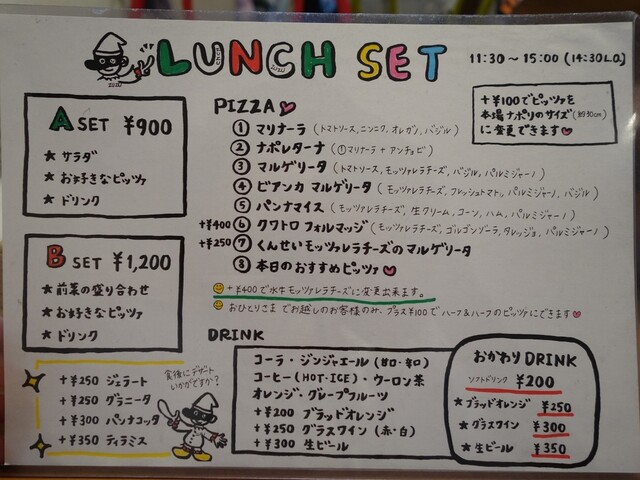 LUNCH SET
11:30～15:00 (14:30L.O.)
A SET ¥900
★ サラダ
★ お好きなピッツァ
★ ドリンク
B SET ¥1,200
★ 前菜の盛り合わせ
★ お好きなピッツァ
★ ドリンク
+¥250 ジェラート
+¥250 グラニータ
+¥300 パンナコッタ
+¥350 ティラミス
食後にデザート
いかがですか?
PIZZA
① マリナーラ (トマトソース, ニンニク, オレガノ, バジル)
② ナポレターナ (①マリナーラ + アンチョビ)
③ マルゲリータ (トマトソース, モッツァレラチーズ, バジル, パルミジャーノ)
④ ビアンカ マルゲリータ (モッツァレラチーズ, フレッシュトマト, パルミジャーノ, バジル)
⑤ パンナマイス (モッツァレラチーズ, 生クリーム, コーン, ハム, パルミジャーノ)
+¥400 ⑥ クワトロ フォルマッジ (モッツァレラチーズ, ゴルゴンゾーラ, タレッジョ, パルミジャーノ)
+¥250 ⑦ くんせいモッツァレラチーズのマルゲリータ
⑧ 本日のおすすめピッツァ
+¥400で水牛モッツァレラチーズに変更出来ます。
おひとりさまでお越しのお客様のみ、プラス¥100でハーフ&ハーフのピッツァにできます
+¥100でピッツァを
本場ナポリのサイズ(約30cm)
に変更できます
DRINK
コーラ・ジンジャエール (甘口・辛口)
コーヒー (HOT・ICE)・ウーロン茶
オレンジ・グレープフルーツ
+¥200 ブラッドオレンジ
+¥250 グラスワイン (赤・白)
+¥300 生ビール
おかわり DRINK
ソフトドリンク ¥200
★ ブラッドオレンジ ¥250
★ グラスワイン ¥300
★ 生ビール ¥350